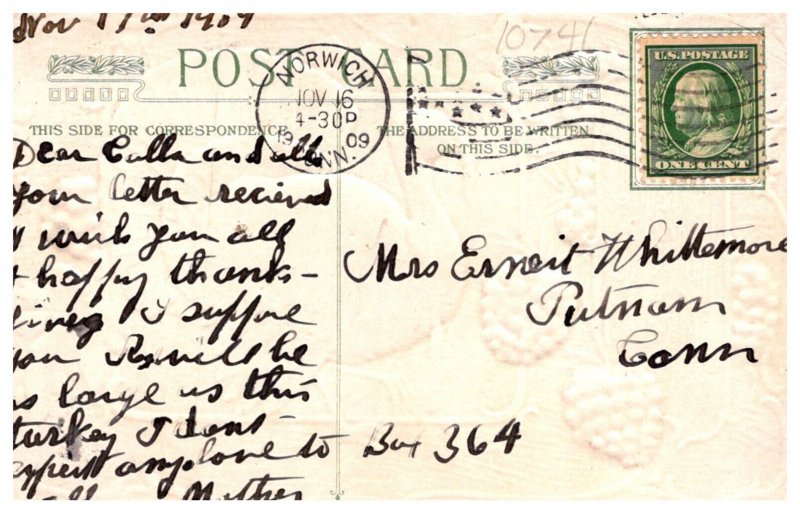 Nov 17th 1909
10741
POST CARD
NORWICH
NOV 16
4-30P
1909
CONN.
U.S. POSTAGE
ONE CENT
THIS SIDE FOR CORRESPONDENCE
THE ADDRESS TO BE WRITTEN
ON THIS SIDE.
Dear Calla and all
your letter recieved
I wish you all
a happy thanks-
giving I suppose
you will be
as large as this
turkey I dont
expect any love to
all Mother
Mrs Ernest Whittemore
Putnam
Conn
Box 364